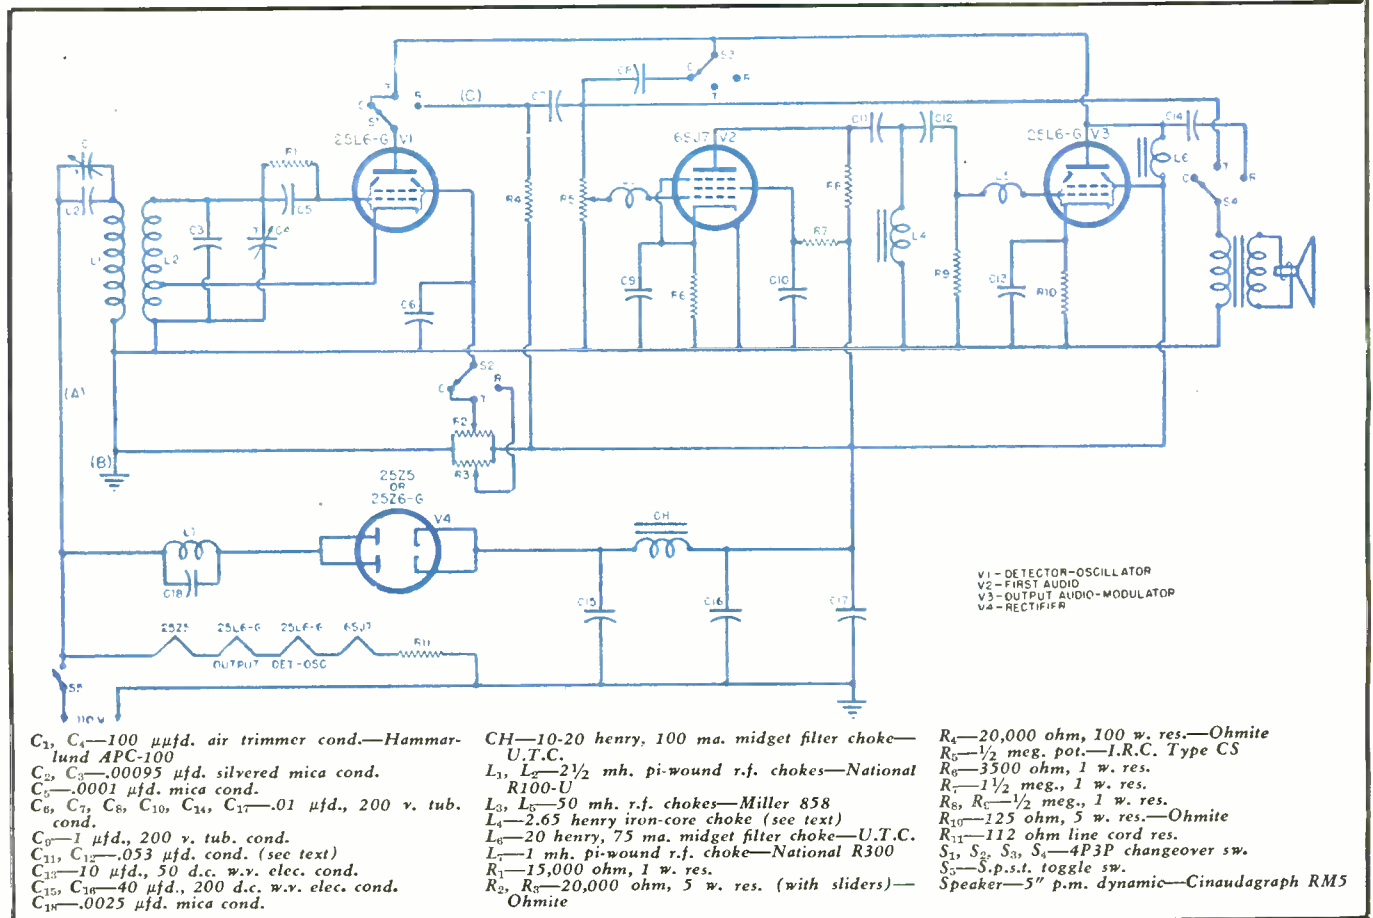 C8 S3 R
T
T (C) C7 C11 C12 C14
C R
S1
25L6-G V1 6SJ7 V2 25L6-G V3
C R1 L6 T
C R
R8
L3 L5
L2 C5 R4 R5 S4
C3 C4 R7 L4
L1 L2 R9
C9 R6 C10 C13 R10
C6
S2
C R
(A) T
R2
(B) R3
25Z5
OR
25Z6-G
V4 CH
L7
V1 - DETECTOR-OSCILLATOR
V2 - FIRST AUDIO
V3 - OUTPUT AUDIO-MODULATOR
V4 - RECTIFIER
C18 C15 C16 C17
25Z5 25L6-G 25L6-G 6SJ7 R11
OUTPUT DET-OSC
S5
110 V
C₁, C₄—100 μμfd. air trimmer cond.—Hammar-
lund APC-100
C₂, C₃—.00095 μfd. silvered mica cond.
C₅—.0001 μfd. mica cond.
C₆, C₇, C₈, C₁₀, C₁₄, C₁₇—.01 μfd., 200 v. tub.
cond.
C₉—1 μfd., 200 v. tub. cond.
C₁₁, C₁₂—.053 μfd. cond. (see text)
C₁₃—10 μfd., 50 d.c. w.v. elec. cond.
C₁₅, C₁₆—40 μfd., 200 d.c. w.v. elec. cond.
C₁₈—.0025 μfd. mica cond.
CH—10-20 henry, 100 ma. midget filter choke—
U.T.C.
L₁, L₂—2½ mh. pi-wound r.f. chokes—National
R100-U
L₃, L₅—50 mh. r.f. chokes—Miller 858
L₄—2.65 henry iron-core choke (see text)
L₆—20 henry, 75 ma. midget filter choke—U.T.C.
L₇—1 mh. pi-wound r.f. choke—National R300
R₁—15,000 ohm, 1 w. res.
R₂, R₃—20,000 ohm, 5 w. res. (with sliders)—
Ohmite
R₄—20,000 ohm, 100 w. res.—Ohmite
R₅—½ meg. pot.—I.R.C. Type CS
R₆—3500 ohm, 1 w. res.
R₇—1½ meg., 1 w. res.
R₈, R₉—½ meg., 1 w. res.
R₁₀—125 ohm, 5 w. res.—Ohmite
R₁₁—112 ohm line cord res.
S₁, S₂, S₃, S₄—4P3P changeover sw.
S₅—S.p.s.t. toggle sw.
Speaker—5" p.m. dynamic—Cinaudagraph RM5